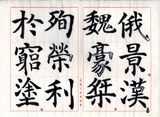 俄景漢
魏豪桀
殉榮利
於窮塗